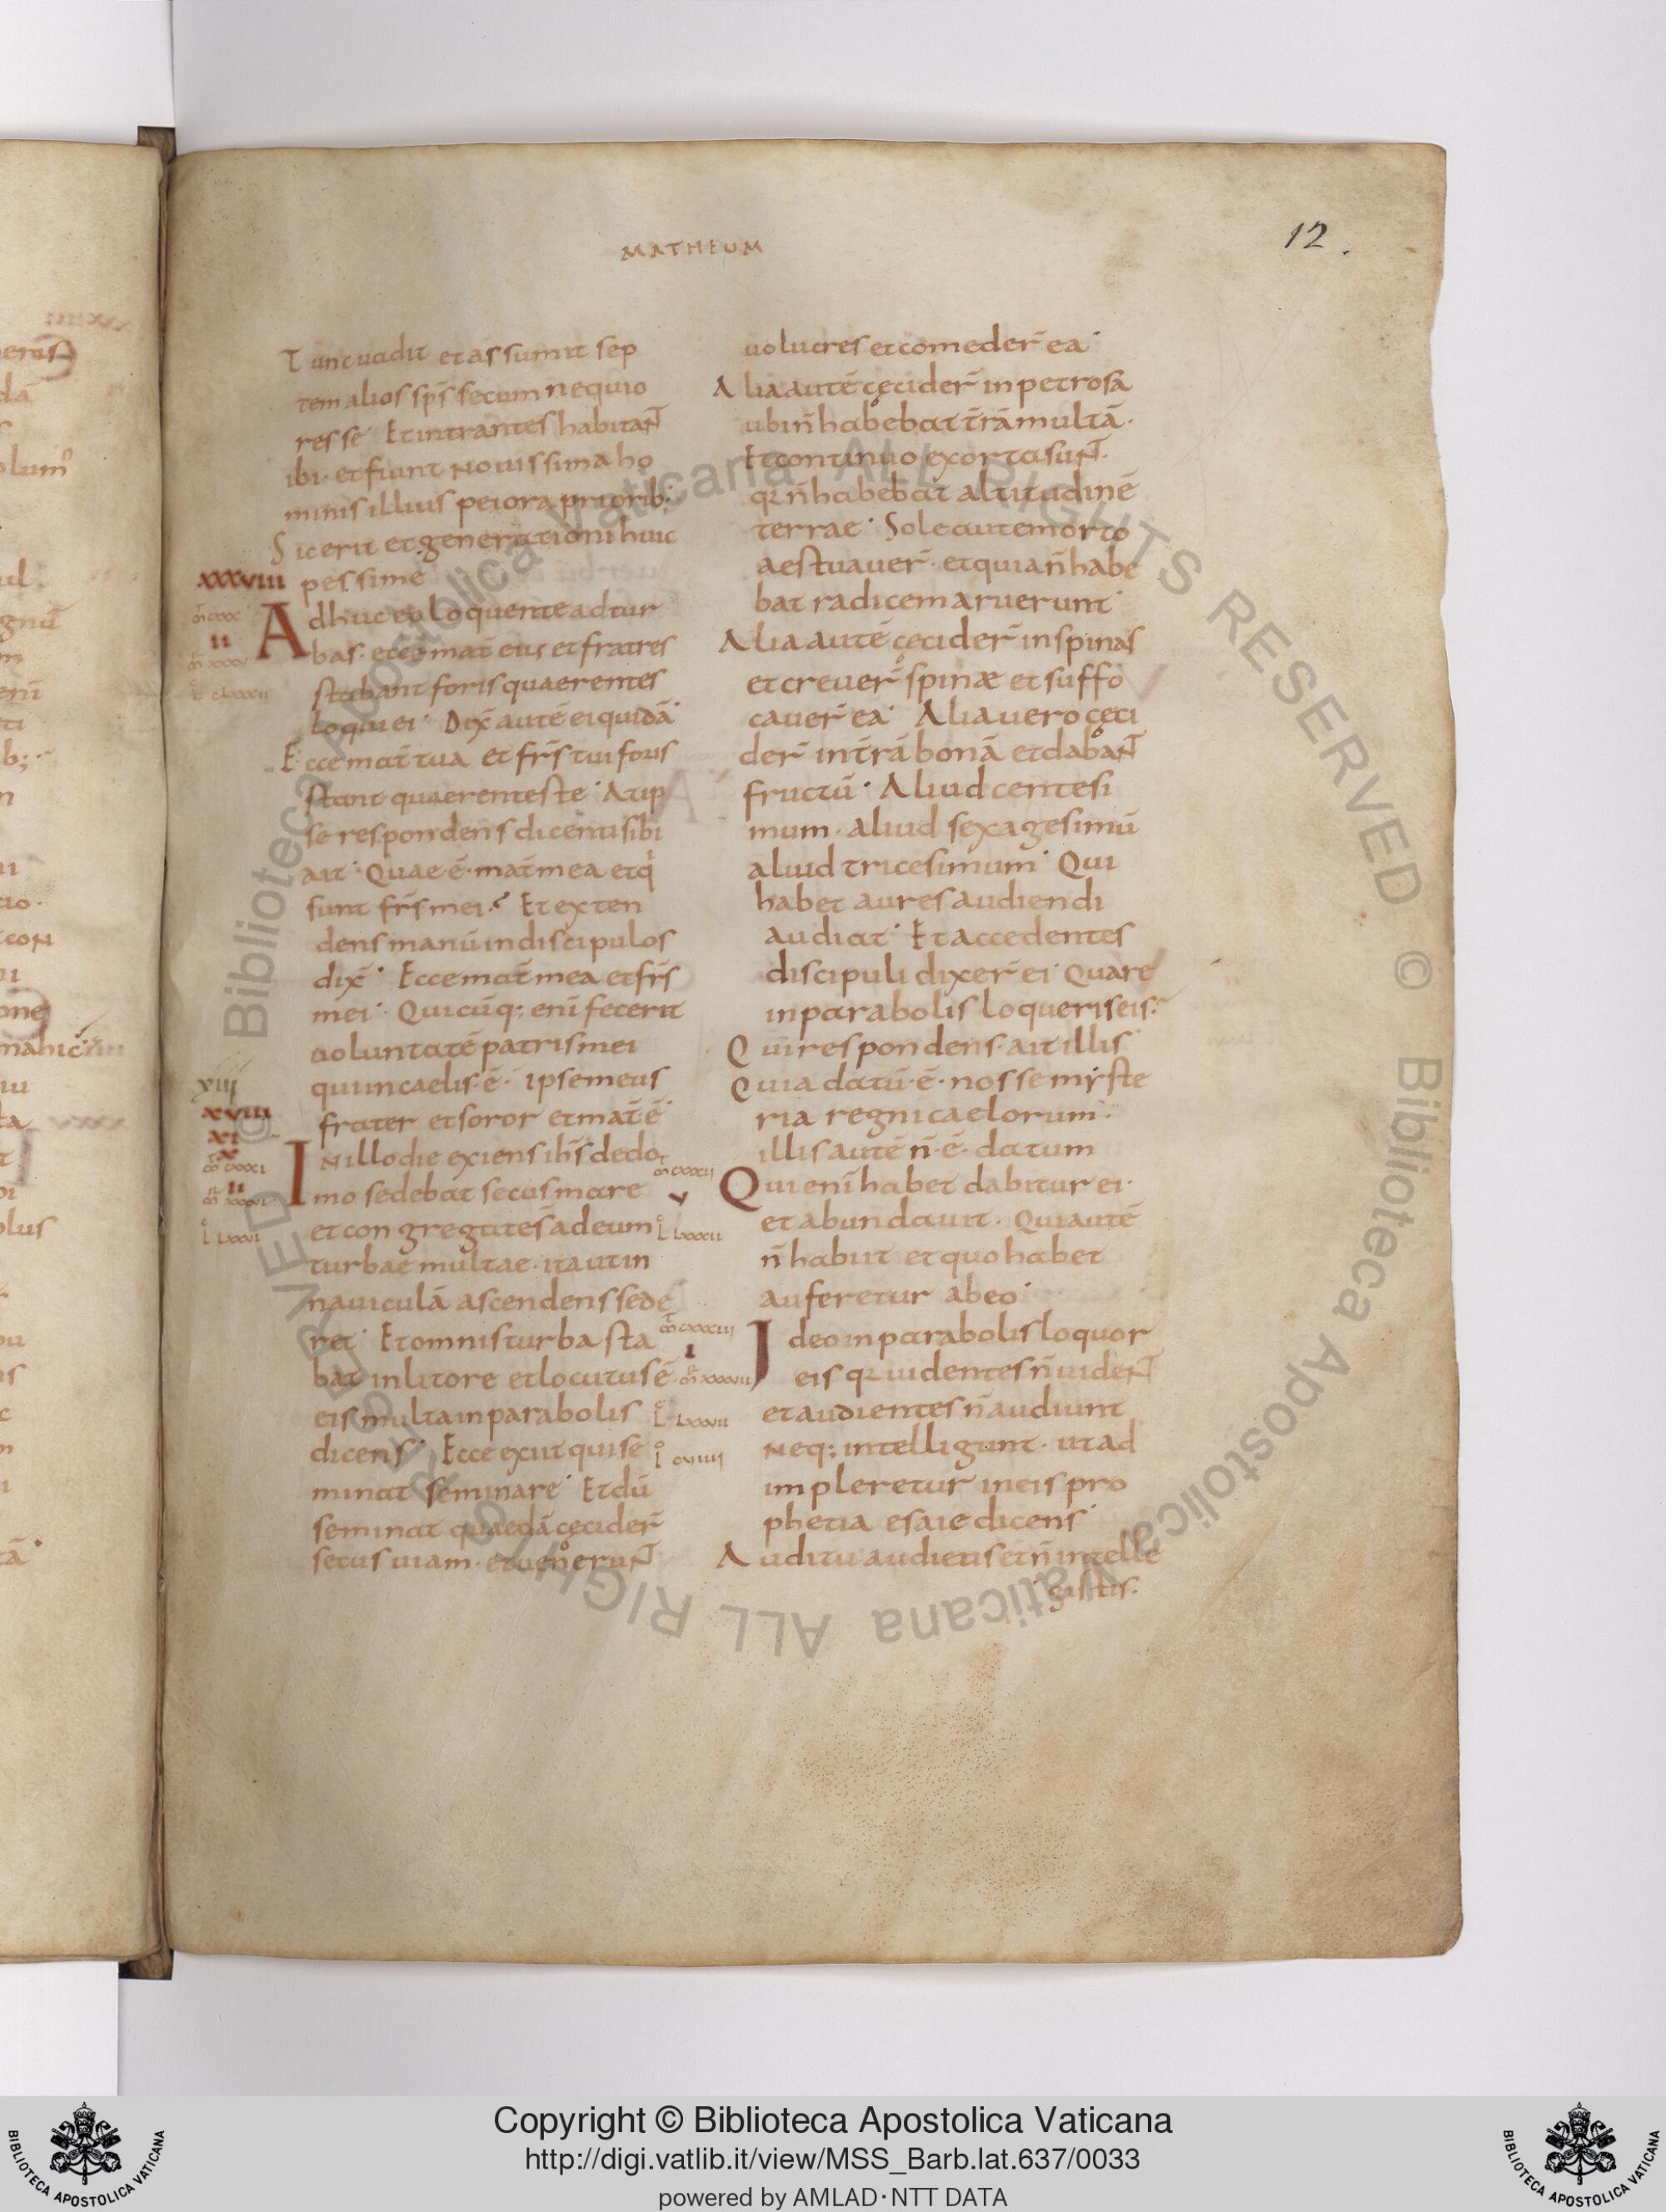 MATHEUM
12.
Tunc uadit et assumit sep
tem alios sp̄s secum nequio
res se Et intrantes habitaN̄T
ibi · et fiunt Nouissima ho
minis illius peiora priorib;
Sic erit et generationi huic
pessime
XXXVIII
Adhuc eo loquente ad tur
bas · ecce mat̄ eius et fratres
stabant foris quaerentes
loqui ei · Dix̄ autē ei quidā
Ecce mat̄ tua et fr̄s tui foris
stant quaerentes te · At ip
se respondens dicenti sibi
ait · Quae ē · mat̄ mea et q
sunt fr̄s mei ? Et exten
dens manū in discipulos
dix̄ · Ecce mat̄ mea et fr̄s
mei · Quicūq; enī fecerit
uoluntatē patris mei
qui in caelis · ē · ipse meus
frater et soror et mat̄ ē
XIII
XVIII
IN illo die exiens ih̄s de do
mo sedebat secus mare
et congregates̄ ad eum
turbae multae · ita ut in
nauiculā ascendens sede
ret · Et omnis turba sta
bat in litore et locutus ē ·
eis multa in parabolis
dicens · Ecce exiit qui se
minat seminare · Et dū
seminat quaedā cecider̄
secus uiam · et uenerunt
uolucres et comeder̄ ea ·
Alia autē cecider̄ in petrosa
ubi n̄ habebat t̄rā multā ·
Et continuo exorta suN̄T ·
qr n̄ habebat altitudinē
terrae · Sole autem orto
aestuauer̄ · et quia n̄ habe
bat radicem aruerunt ·
Alia autē cecider̄ in spinas
et creuer̄ spinæ et suffo
cauer̄ ea · Alia uero ceci
der̄ in t̄rā bonā et dabaN̄T
fructū · Aliud centesi
mum · aliud sexagesimū
aliud tricesimum · Qui
habet aures audiendi
audiat · Et accedentes
discipuli dixer̄ ei · Quare
in parabolis loqueris eis ?
Qui respondens · ait illis ·
Quia datū · ē · nosse myste
ria regni caelorum ·
illis autē n̄ · ē · datum
Qui enī habet dabitur ei ·
et abundauit · Qui autē
n̄ habuit et quo habet
auferetur ab eo ·
Ideo in parabolis loquor
eis qr uidentes n̄ uideN̄T
et audientes n̄ audiunt
Neq; intelligunt · ut ad
impleretur in eis pro
phetia esaie dicens ·
Auditu audietis et n̄ intelle
gistis ·
Copyright © Biblioteca Apostolica Vaticana
http://digi.vatlib.it/view/MSS_Barb.lat.637/0033
powered by AMLAD·NTT DATA